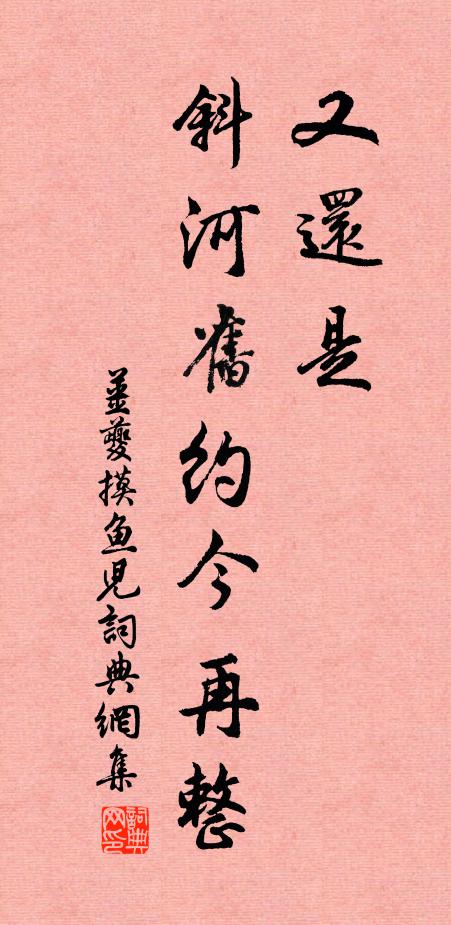 又還是
斜河舊約今再整
姜夔摸魚児詞典網集
詞典
网印